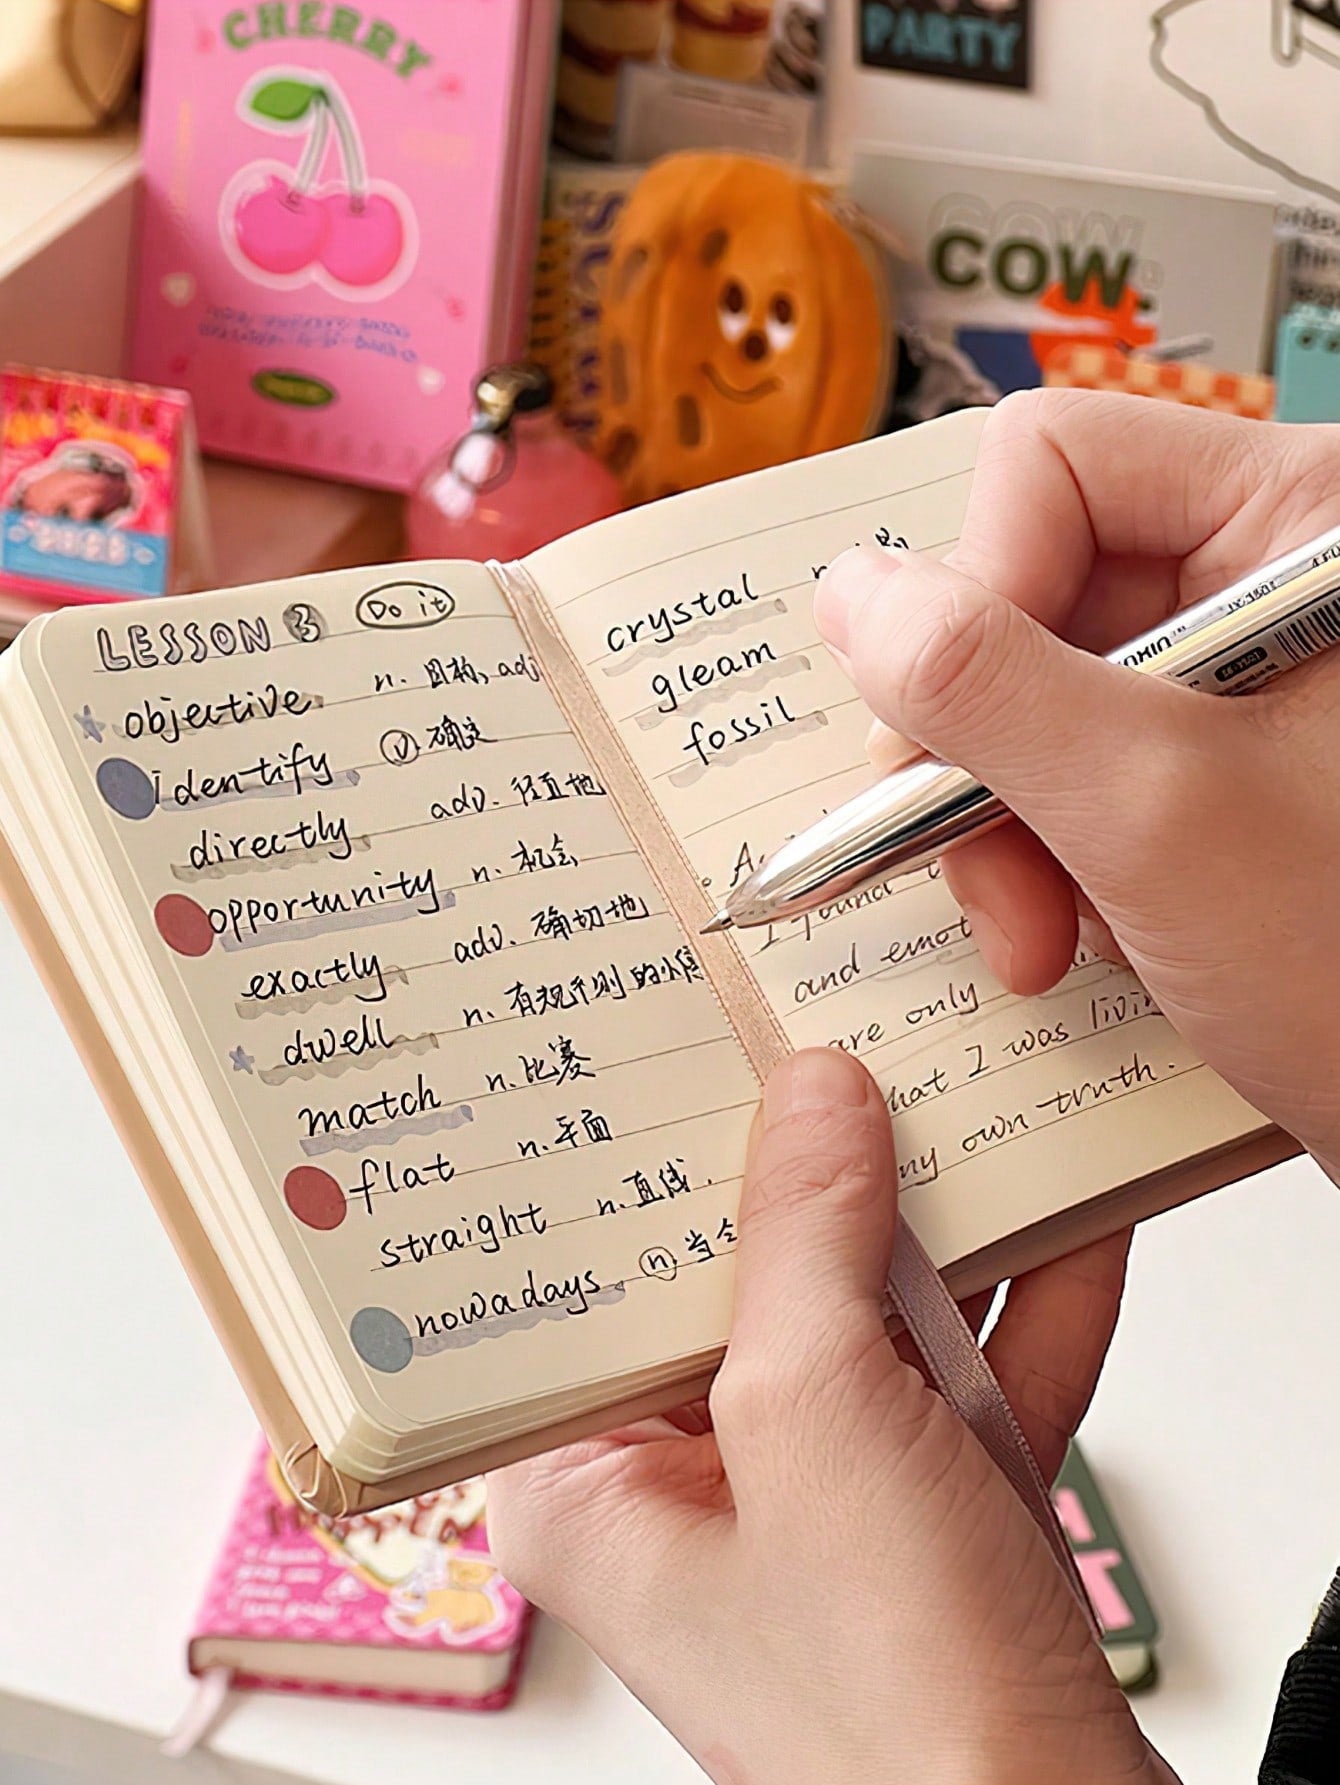 CHERRY
PARTY
COW.
LESSON 3 Do it
objective n. 目的, adj
identify v. 确定
directly adv. 径直地
opportunity n. 机会
exactly adv. 确切地
dwell n.
match n. 比赛
flat n. 平面
straight n. 直线.
nowadays n. 当今
crystal
gleam
fossil
I found
and emot
are only
hat I was livin
my own truth.